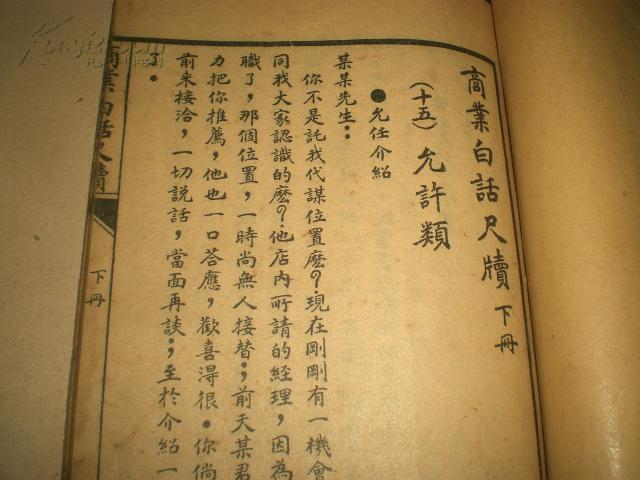 商業白話尺牘 下冊
(十五) 允許類
●允任介紹
某某先生：
你不是託我代謀位置麼？現在剛剛有一機會
同我大家認識的麼？他店內所請的經理，因為
職了，那個位置，一時尚無人接替；前天某君
力把你推薦，他也一口答應，歡喜得很。你倘
前來接洽，一切說話，當面再談；至於介紹一
了。
商業白話尺牘
下冊